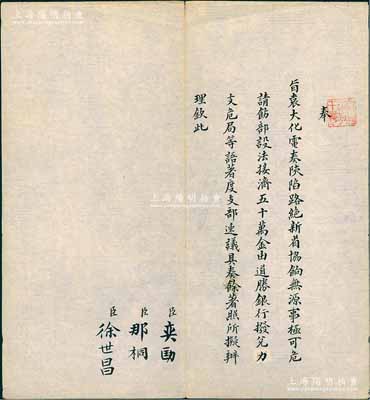 上海陽明拍賣
奉
旨袁大化電奏陝陷路絕新省協餉無源事極可危
請飭部設法接濟五十萬金由道勝銀行撥兌力
支危局等語著度支部速議具奏餘著照所擬辦
理欽此
臣奕劻
臣那桐
臣徐世昌
上海陽明拍賣
上海陽明拍賣